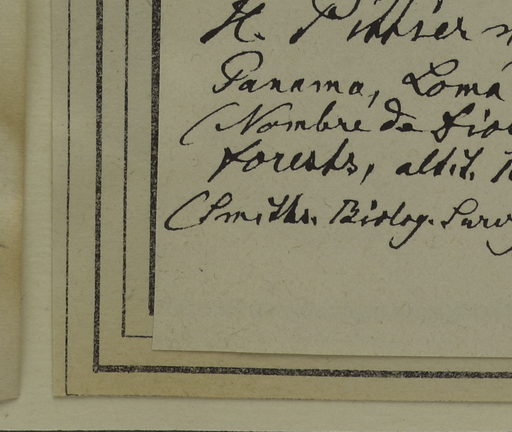 H. Pittier
Panama, Loma
(Nombre de Dios
forests, altit.
(Smiths. Biolog. Surv